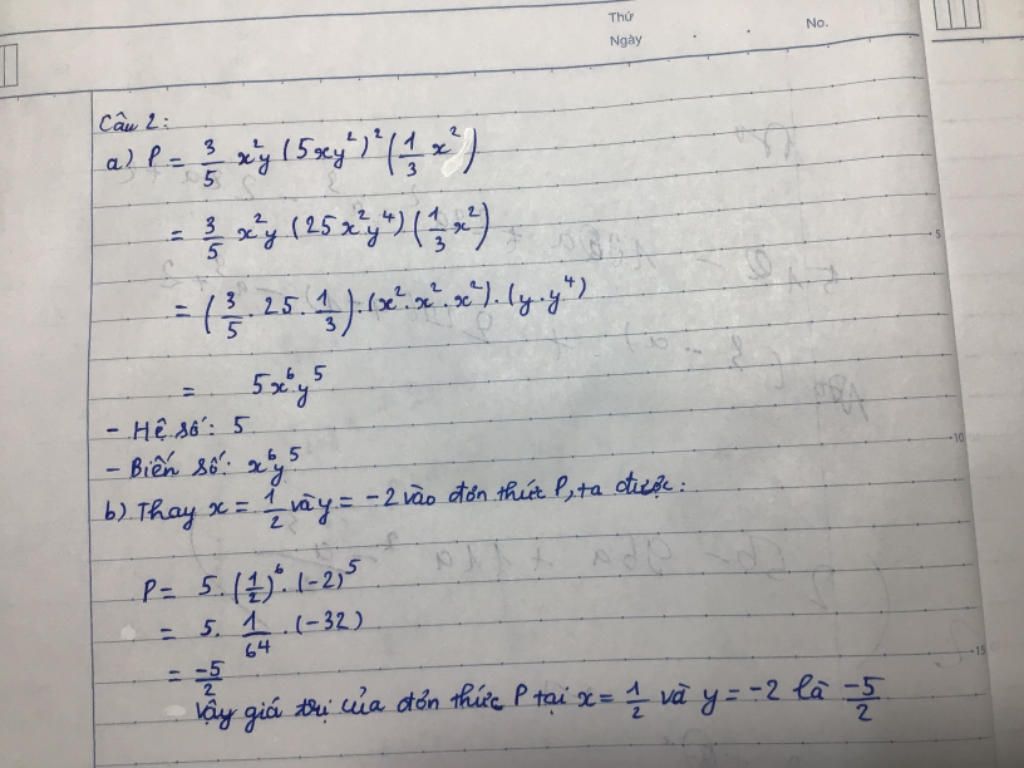 Thứ
No.
Ngày
Câu 2:
a) P = 3/5 x²y (5xy²)² (1/3 x²)
= 3/5 x²y (25x²y⁴) (1/3 x²)
5
= (3/5 . 25 . 1/3) . (x² . x² . x²) . (y . y⁴)
= 5x⁶y⁵
- Hệ số: 5
10
- Biến số: x⁶y⁵
b) Thay x = 1/2 và y = -2 vào đơn thức P, ta được:
P = 5 . (1/2)⁶ . (-2)⁵
= 5 . 1/64 . (-32)
15
= -5/2
Vậy giá trị của đơn thức P tại x = 1/2 và y = -2 là -5/2